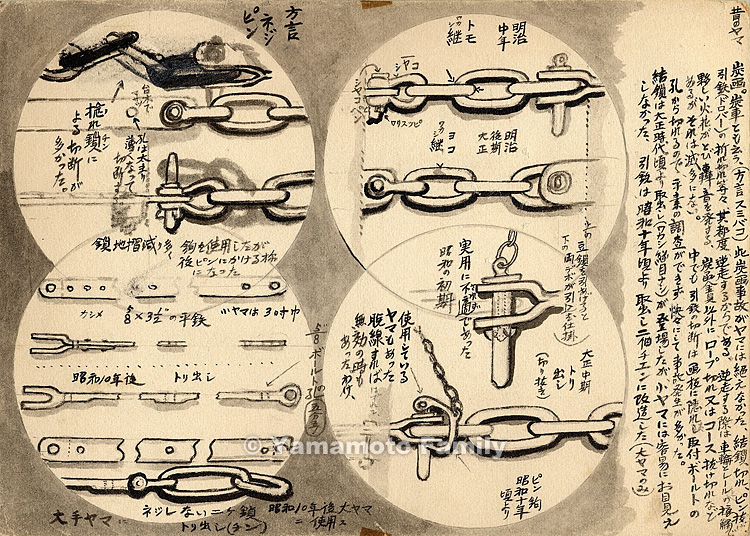 昔のヤマ
炭函。炭車とも云う、(方言スミバコ) 此炭函事故がヤマには絶えなかった、結鎖切れ、ピン抜け
引鉄(ドロバー)の折れ切れ等々、其都度逆走するからである。逆走する際は車輪とレールの接触で
夥しい火花がとび轟音を発する。炭函貴以外にロープ切れ又はコース抜け切れなど
あるが、それは滅多にない。中でも引鉄の切断は函枝に隠れし取付ボールトの
孔から切れるので、平素の調査ができず快常にて事故発生が多かった。
結鎖は大正時代頃より取出し(ワカシ継目ナシ)が登場したが小ヤマには容易にお目見え
しなかった、引鉄は昭和十年頃より取出し二個チエンに改造した(大ヤマのみ)
方言
ネジ
ピン
台木で
孔は太まり
薄くなって
切断す
捻れ鎖に
よる切断が
多かった。
鎖地摺減り多く
鈎を使用しながら
後ピンにかける様
になった
明治
中年
トモ
ワカシ継
シャコ
シャコペン
明治
後期
大正
ヨコ
ワカシ継
カシメ
5/8×3½"の平鉄
小ヤマは30寸巾
昭和10年後
トリ出し
5/8"ボールト
ネジレない二ケ鎖
トリ出し(チン)
昭和10年後大ヤマ
ニ使用ス
大手ヤマ
上の豆鎖を引あげると
下の両デボが引込む仕掛
実用に不適であった
昭和の初期
大正中期
トリ
出し
(切り抜き)
使用している
ヤマもあった
脱線すれば
無効の時も
あったわけ、
ピン鈎
昭和十年
頃より
© Yamamoto Family